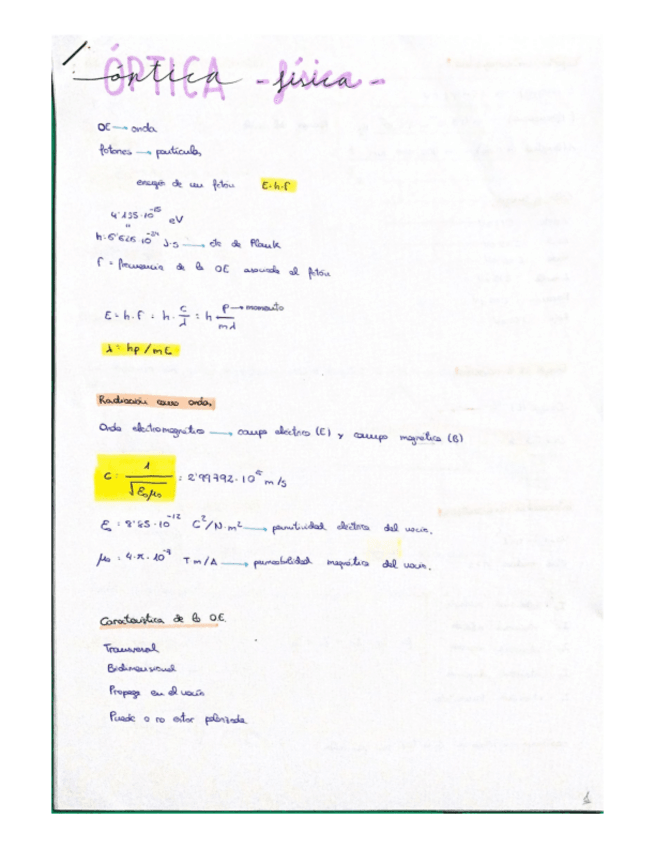 1.
óptica - física -
OE → onda
fotones → partículas
energía de un fotón E=h·f
4'135·10^-15 eV
"
h=6'626·10^-34 J·s → cte de Plank
f = frecuencia de la OE asociada al fotón
E = h·f = h·c/λ = h p/mλ → momento
λ = hp/mE
Radiación como onda
Onda electromagnética → campo eléctrico (E) y campo magnético (B)
c = 1/√ε₀μ₀ = 2'99792·10^8 m/s
ε₀ = 8'85·10^-12 C²/N·m² → permitividad eléctrica del vacío.
μ₀ = 4·π·10^-7 Tm/A → permeabilidad magnética del vacío.
Característica de la OE.
Transversal
Bidimensional
Propaga en el vacío
Puede o no estar polarizada
1